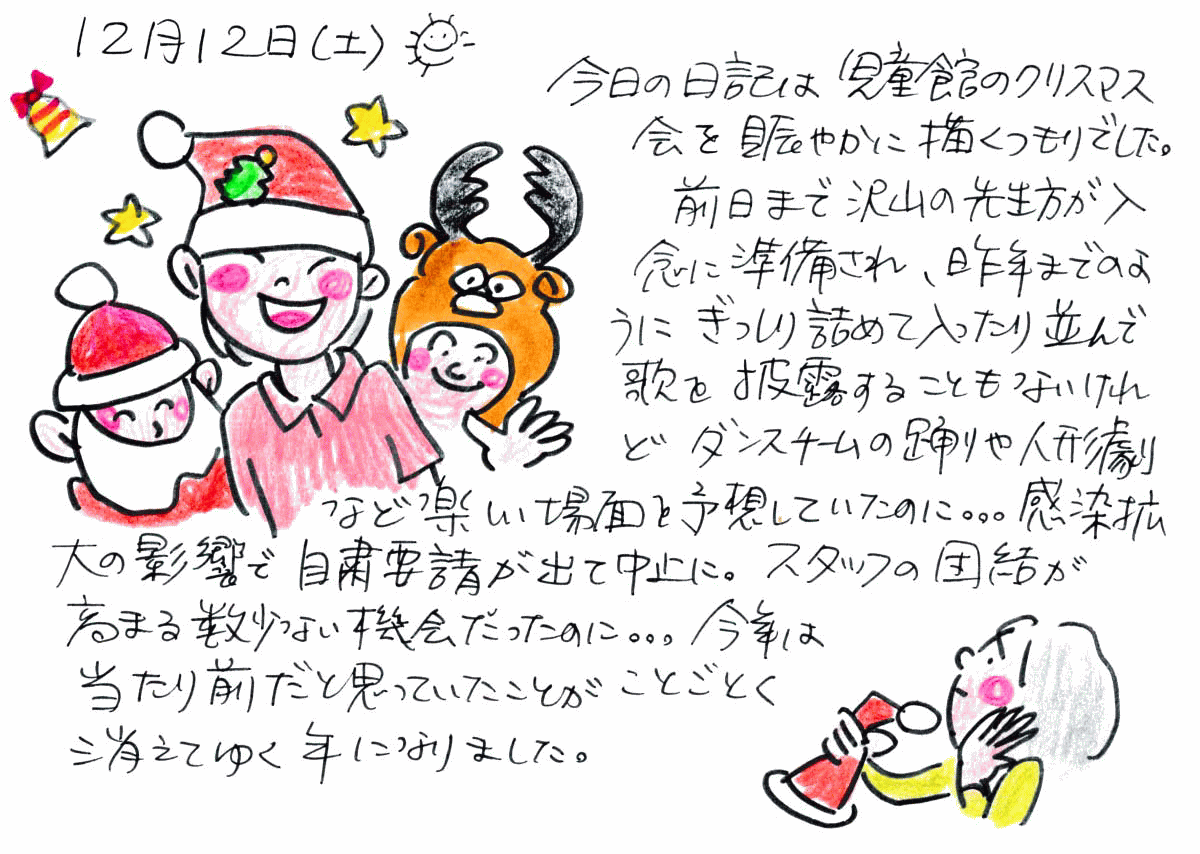 12月12日(土)
今日の日記は児童館のクリスマス
会を賑やかに描くつもりでした。
前日まで沢山の先生方が入
念に準備され、昨年までのよ
うにぎっしり詰めて入ったり並んで
歌を披露することもないけれ
どダンスチームの踊りや人形劇
など楽しい場面を予想していたのに。。。感染拡
大の影響で自粛要請が出て中止に。スタッフの団結が
高まる数少ない機会だったのに。。。今年は
当たり前だと思っていたことがことごとく
消えてゆく年になりました。